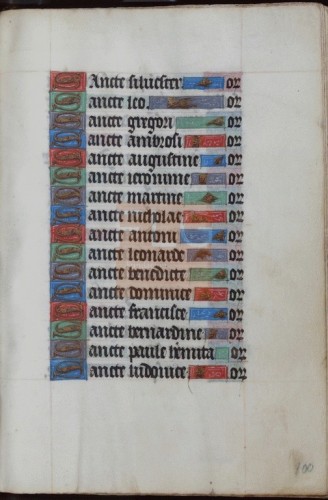 Sancte siluester or
Sancte leo. or
Sancte gregori or
Sancte ambrosi or
Sancte augustine or
Sancte ieronime or
Sancte martine or
Sancte nicholae or
Sancte antoni or
Sancte leonarde or
Sancte benedicte or
Sancte dominice or
Sancte francisce. or
Sancte bernardine or
Sancte paule hemita or
Sancte ludouice. or
100